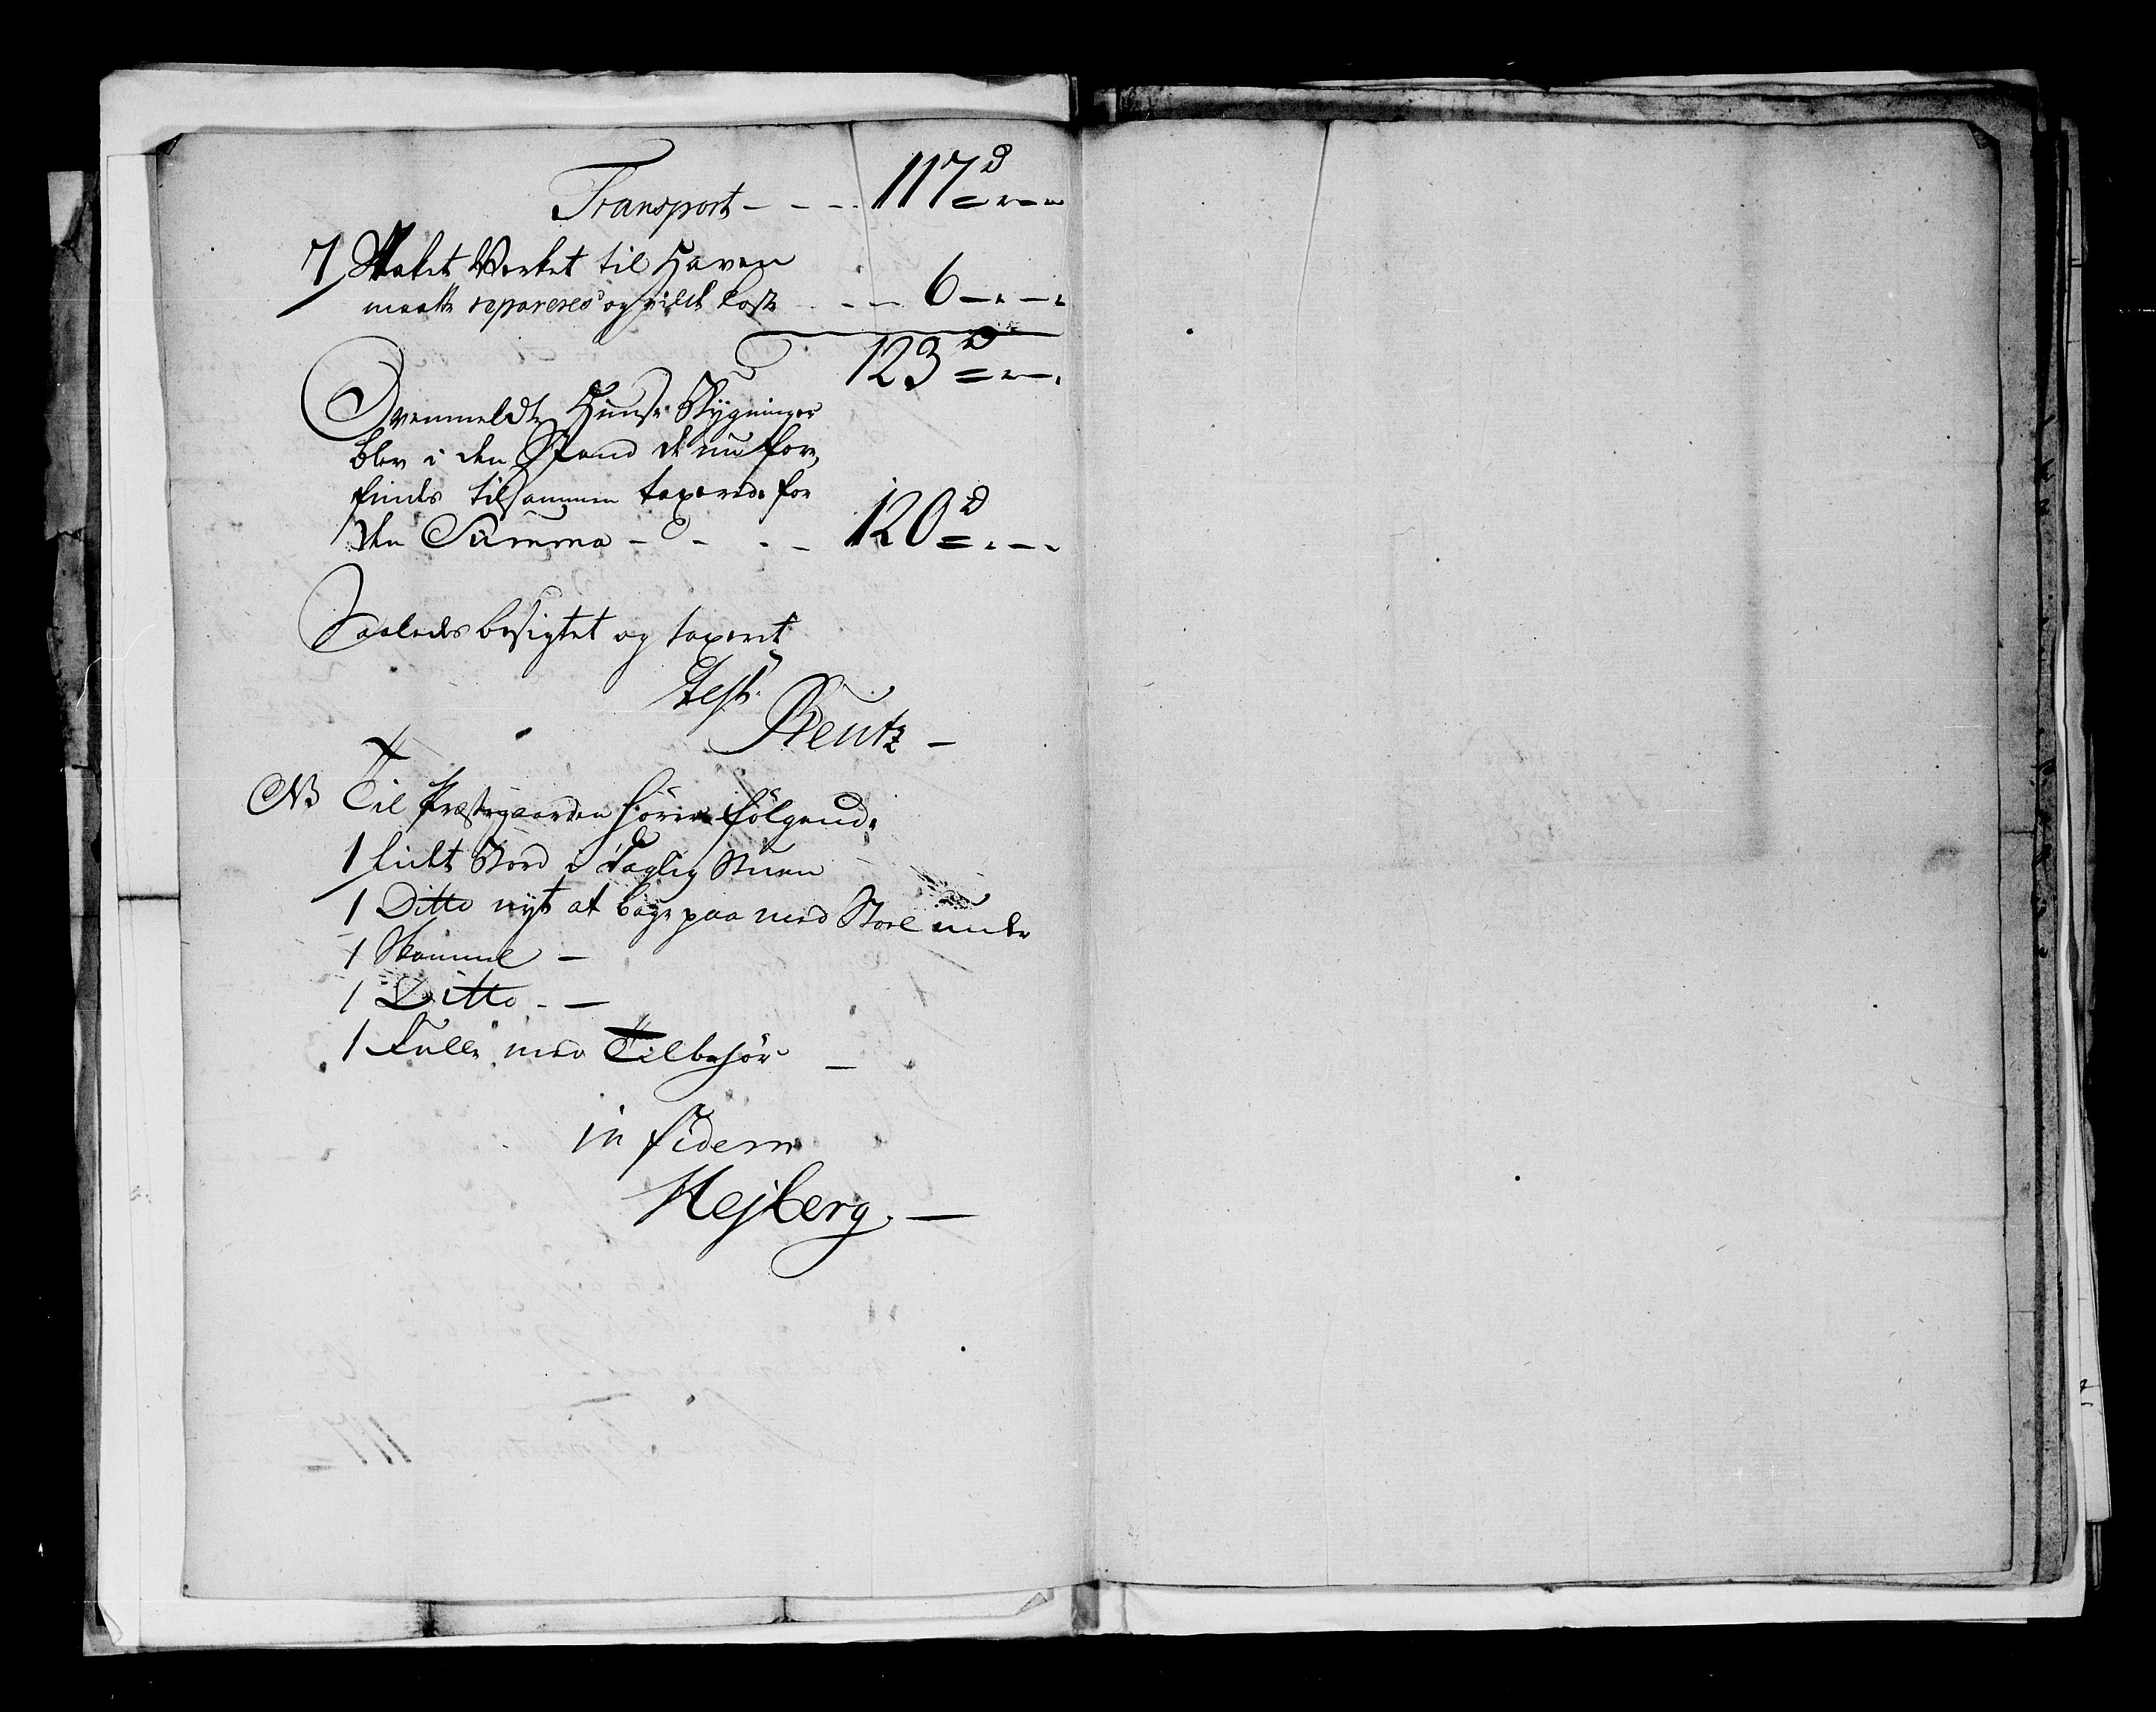 Transport - - - 117 D
7 Staket Verket til Haven
maatte repareres og vilde koste - - 6
123 D
Ovenmeldte Huuse Bygninger
blev i den Stand de nu fore
findes tilsammen taxerede for
den Summa - - - 120 D
Saaledes besigtet og taxeret
Test.
Reutz
NB Til Præstegaarden hører følgende
1 lidet Bord i Daglig Stuen
1 Ditto nyt at bage paa med Stoel under
1 Skammel -
1 Ditto - -
1 Kulle med Tilbehør
in fidem
Hejberg. -